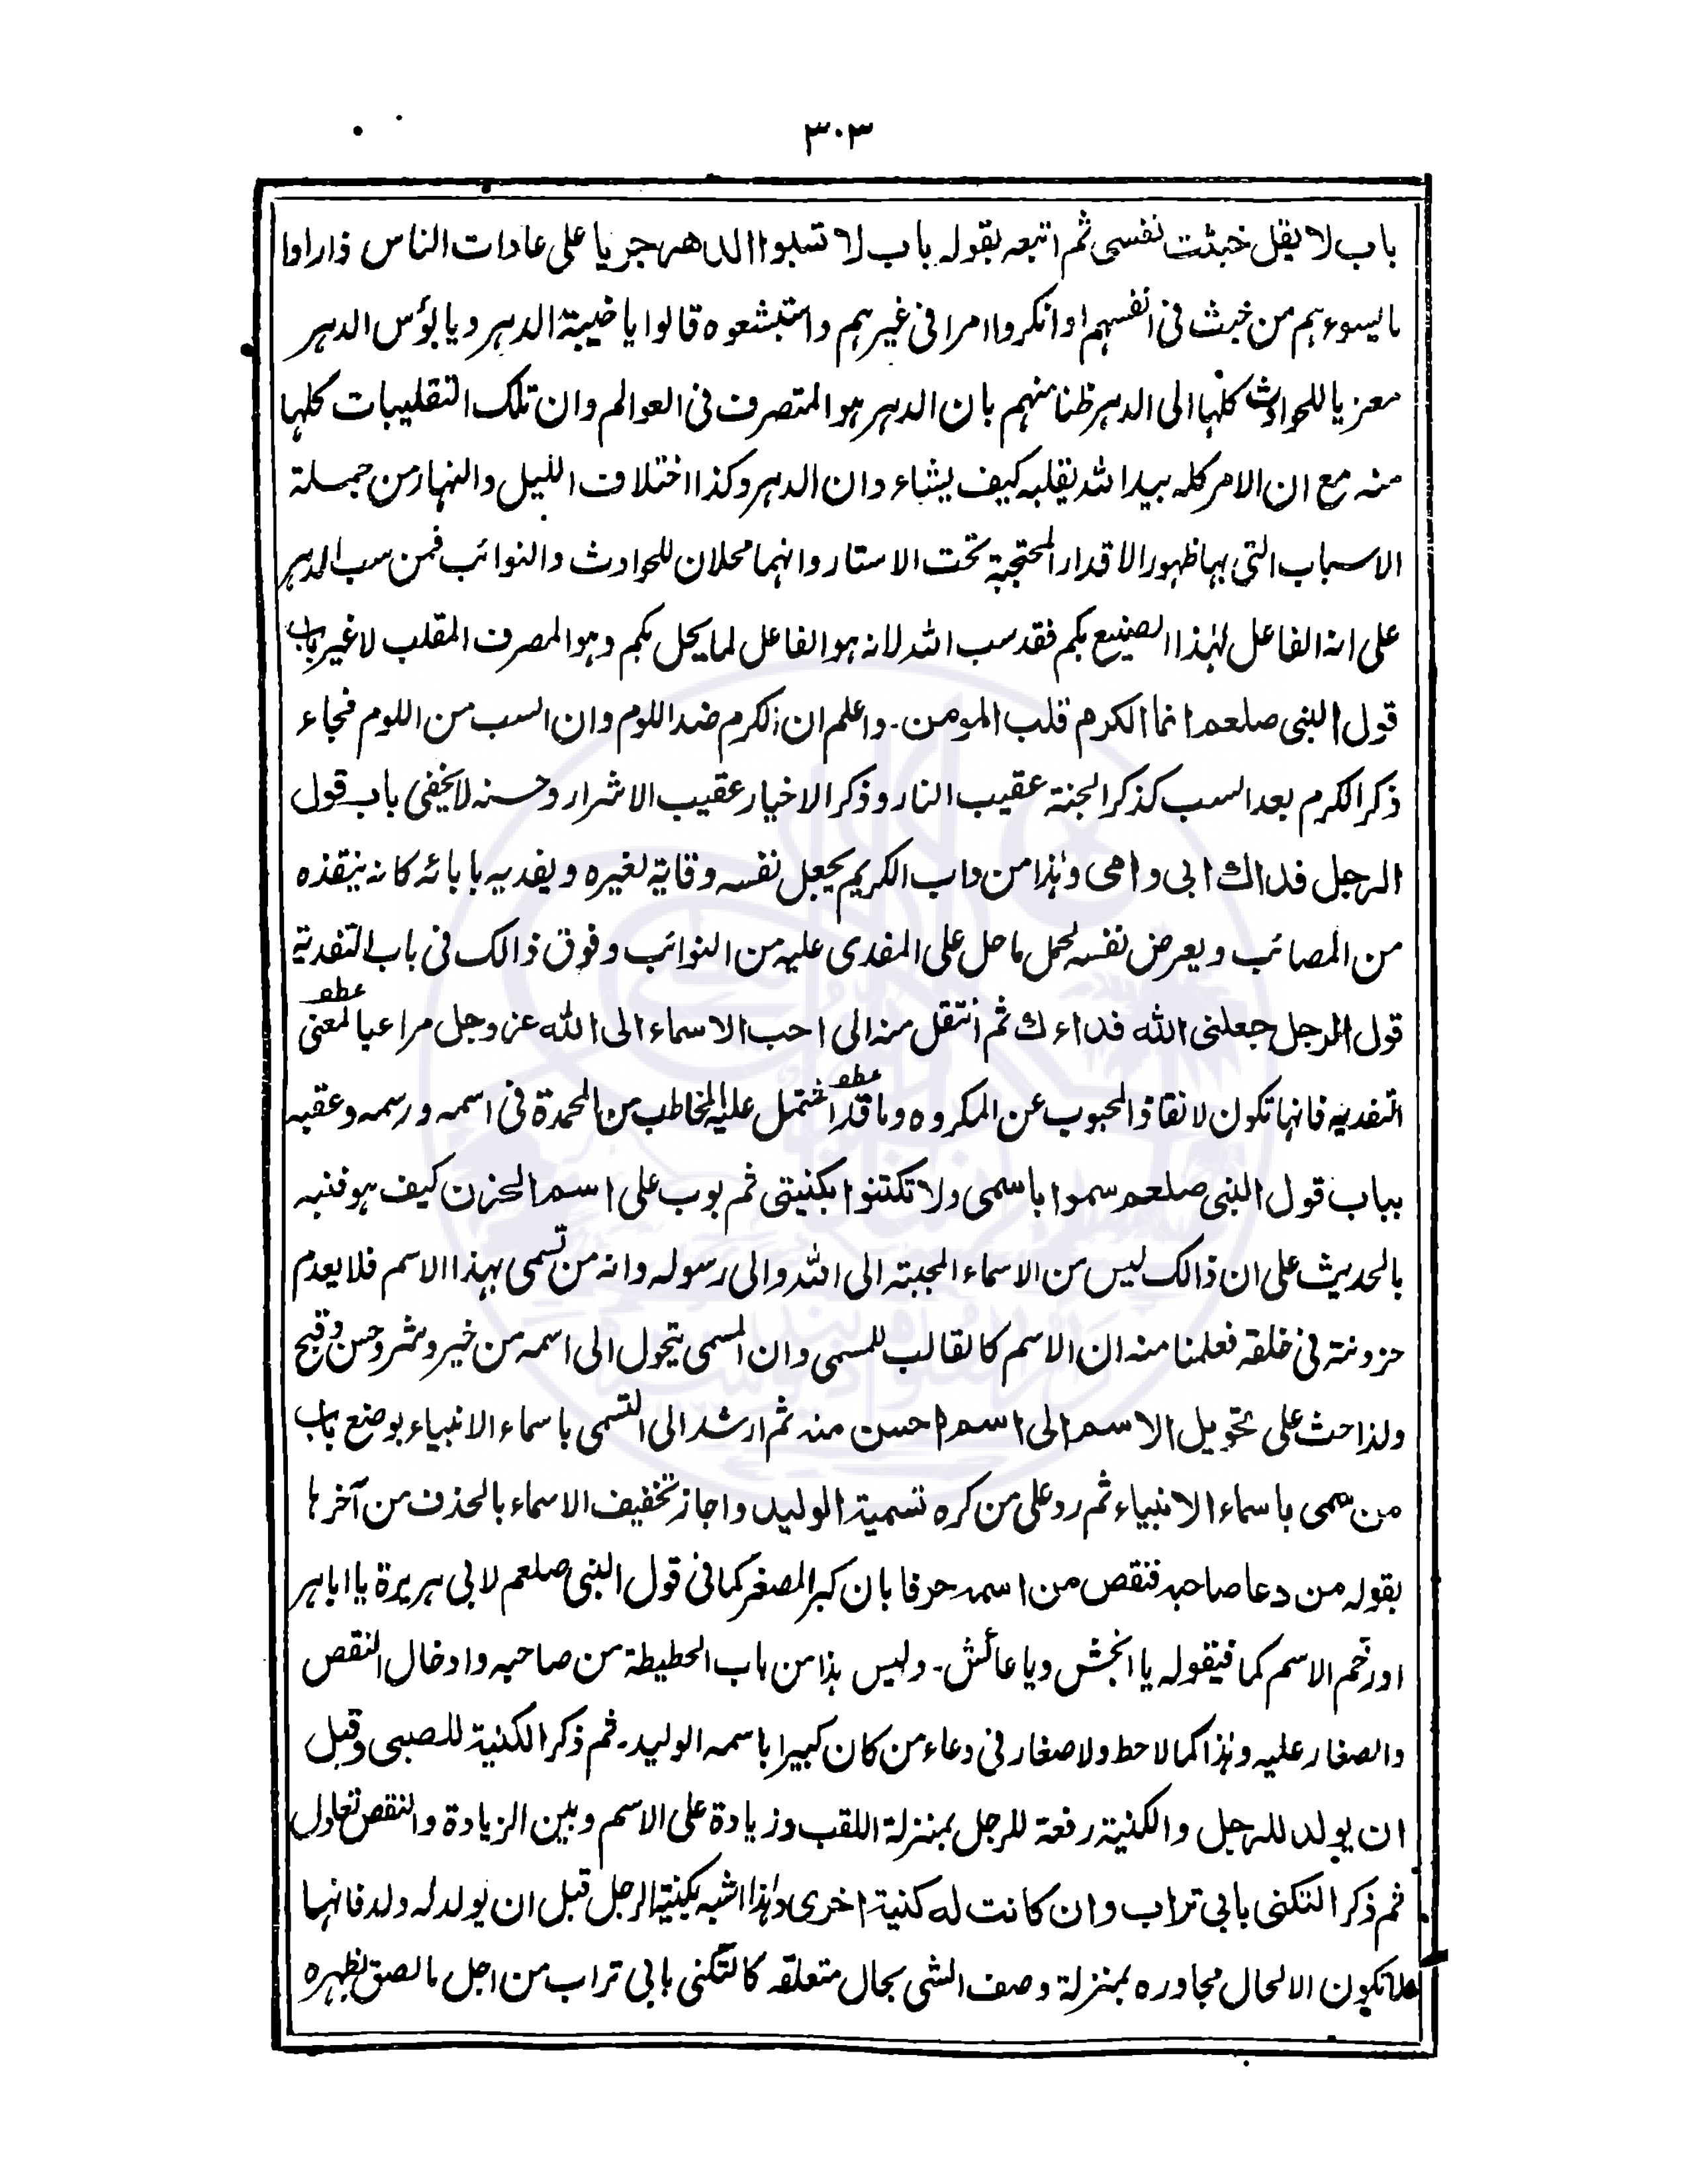 ۳۰۳
باب لا يقل خبثت نفسى ثم اتبعه بقوله باب لا تسبوا الدهر جريا على عادات الناس ذا راوا
ما يسوءهم من خبث فى انفسهم او انكروا امرا فى غيرهم واستبشعوه قالوا يا خيبة الدهر ويا بوس الدهر
معزيا للحوادث كلها الى الدهر ظنا منهم بان الدهر هو المتصرف فى العوالم وان تلك التقليبات كلها
منه مع ان الامر كله بيد الله يقلبه كيف يشاء وان الدهر وكذا اختلاف الليل والنهار من جملة
الاسباب التى بها ظهور الاقدار المحتجبة تحت الاستار وانهما محلان للحوادث والنوائب فمن سب الدهر
على انه الفاعل لهذا الصنيع بكم فقد سب الله لانه هو الفاعل لما يحل بكم وهو المصرف المقلب لا غير باب
قول النبى صلعم انما الكرم قلب المومن۔ واعلم ان الكرم ضد اللوم وان السب من اللوم فجاء
ذكر الكرم بعد السب كذكر الجنة عقيب النار وذكر الاخيار عقيب الاشرار وحسنه لا يخفى باب قول
الرجل فداك ابى وامى وهٰذا من داب الكريم يجعل نفسه وقاية لغيره ويفديه بابائه كانه ينقذه
من المصائب ويعرض نفسه لحمل ما حل على المفدى عليه من النوائب وفوق ذالك فى باب التفدية
قول الرجل جعلنى الله فداءك ثم انتقل منه الى احب الاسماء الى الله عز وجل مراعيا لمعنى عطف
التفديه فانها تكون لانقاذ المحبوب عن المكروه وما قد عطف اشتمل عليه المخاطب من المحمدة فى اسمه ورسمه وعقبه
بباب قول النبى صلعم سموا باسمى ولا تكتنوا بكنيتى ثم بوب على اسم الحزن كيف هو فنبه
بالحديث على ان ذالك ليس من الاسماء المجبته الى الله والى رسوله وانه من تسمى بهذا الاسم فلا يعدم
حزونة فى خلقه فعلمنا منه ان الاسم كالقالب للمسمى وان المسمى يتحول الى اسمه من خير وشر وحسن وقبح
ولذا حث على تحويل الاسم الى اسم احسن منه ثم ارشد الى التسمى باسماء الانبياء بوضع باب
من سمى باسماء الانبياء ثم رد على من كره تسمية الوليد واجاز تخفيف الاسماء بالحذف من آخرها
بقوله من دعا صاحبه فنقص من اسمه حرفا بان كبر المصغر كما فى قول النبى صلعم لابى هريرة يا اباهر
او رخم الاسم كما فيقوله يا انجش ويا عائش۔ وليس هذا من باب الحطيطة من صاحبه وادخال النقص
والصغار عليه وهٰذا كما لاحط ولا صغار فى دعاء من كان كبيرا باسمه الوليد۔ ثم ذكر الكنية للصبى وقبل
ان يولد للرجل والكنية رفعة للرجل بمنزلة اللقب وزيادة على الاسم وبين الزيادة والنقص تعادل
ثم ذكر التكنى بابى تراب وان كانت له كنية اخرى وهٰذا اشبه بكنية الرجل قبل ان يولد له ولد فانها
لا تكون الا لحال مجاوره بمنزلة وصف الشى بحال متعلقه كالتكنى بابى تراب من اجل ما لصق بظهره